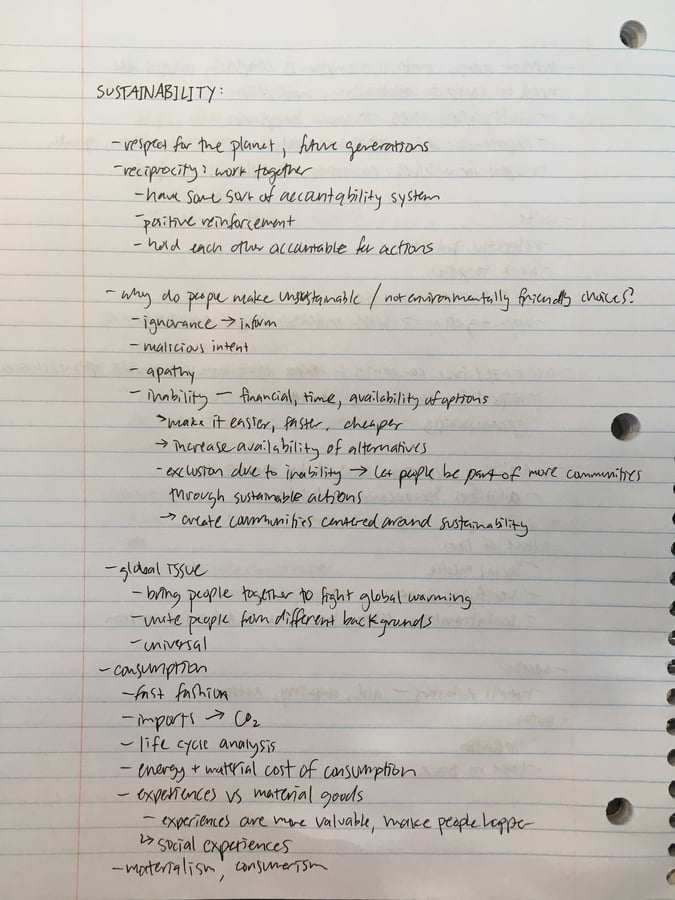 SUSTAINABILITY:
- respect for the planet, future generations
- reciprocity: work together
- have some sort of accountability system
- positive reinforcement
- hold each other accountable for actions
- why do people make unsustainable / not environmentally friendly choices?
- ignorance → inform
- malicious intent
- apathy
- inability — financial, time, availability of options
> make it easier, faster, cheaper
→ increase availability of alternatives
- exclusion due to inability → let people be part of more communities
through sustainable actions
→ create communities centered around sustainability
- global issue
- bring people together to fight global warming
- unite people from different backgrounds
- universal
- consumption
- fast fashion
- imports → CO2
- life cycle analysis
- energy + material cost of consumption
- experiences vs material goods
- experiences are more valuable, make people happier
↳ social experiences
- materialism, consumerism